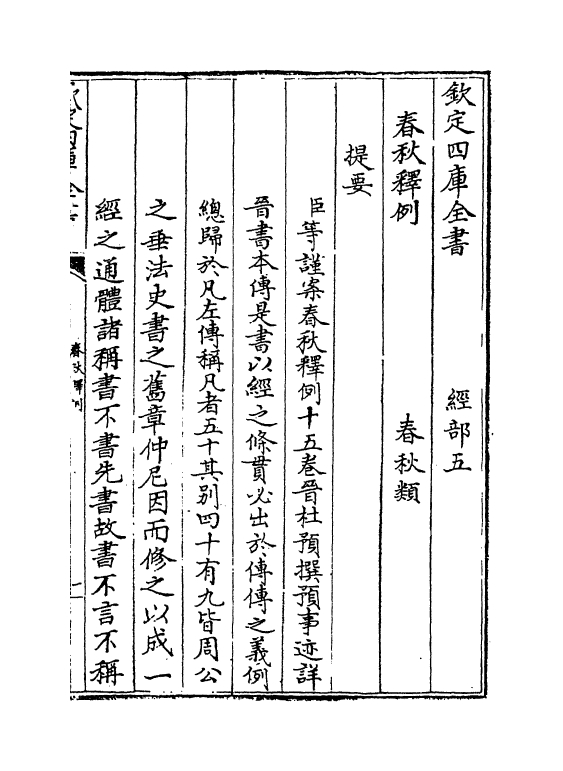 欽定四庫全書　經部五
春秋釋例　春秋類
提要
臣等謹案春秋釋例十五卷晉杜預撰預事迹詳
晉書本傳是書以經之條貫必出於傳傳之義例
總歸於凡左傳稱凡者五十其別四十有九皆周公
之垂法史書之舊章仲尼因而修之以成一
經之通體諸稱書不書先書故書不言不稱
欽定四庫全書
春秋釋例
一